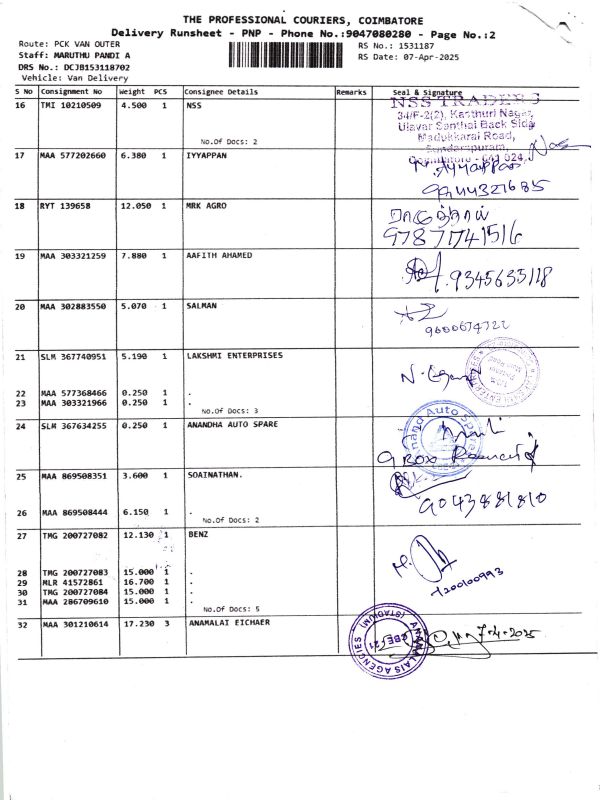 THE PROFESSIONAL COURIERS, COIMBATORE
Delivery Runsheet - PNP - Phone No.:9047080280 - Page No.:2
Route: PCK VAN OUTER RS No.: 1531187
Staff: MARUTHU PANDI A RS Date: 07-Apr-2025
DRS No.: DCJB153118702
Vehicle: Van Delivery
S No Consignment No Weight PCS Consignee Details Remarks Seal & Signature
16 TMI 10210509 4.500 1 NSS
No.Of Docs: 2
NSS TRADERS
34/F-2(2), Kasthuri Nagar,
Ulavar Santhai Back Side
Madukkarai Road,
Sundarapuram,
Coimbatore - 641 024.
17 MAA 577202660 6.380 1 IYYAPPAN
N. Ayyappan
9944321685
18 RYT 139658 12.050 1 MRK AGRO
97871741516
19 MAA 303321259 7.880 1 AAFITH AHAMED
9345635118
20 MAA 302883550 5.070 1 SALMAN
9600674722
21 SLM 367740951 5.190 1 LAKSHMI ENTERPRISES
22 MAA 577368466 0.250 1 .
23 MAA 303321966 0.250 1 .
No.Of Docs: 3
24 SLM 367634255 0.250 1 ANANDHA AUTO SPARE
Anand Auto Spares
9 Box Received
25 MAA 869508351 3.600 1 SOAINATHAN.
9043881810
26 MAA 869508444 6.150 1 .
No.Of Docs: 2
27 TMG 200727082 12.130 1 BENZ
28 TMG 200727083 15.000 1 .
29 MLR 41572861 16.700 1 .
30 TMG 200727084 15.000 1 .
31 MAA 286709610 15.000 1 .
No.Of Docs: 5
7200100993
32 MAA 301210614 17.230 3 ANAMALAI EICHAER
ANAMALAIS AGENCIES (STADIUM)
CBE-21
7-4-2025